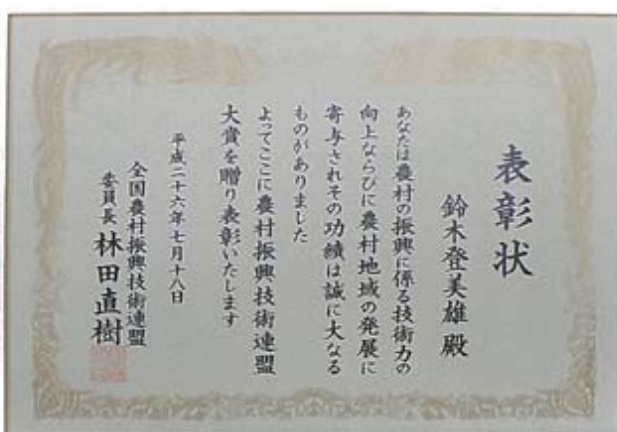 表彰状
鈴木登美雄 殿
あなたは農村の振興に係る技術力の
向上ならびに農村地域の発展に
寄与されその功績は誠に大なる
ものがありました
よってここに農村振興技術連盟
大賞を贈り表彰いたします
平成二十六年七月十八日
全国農村振興技術連盟
委員長 林田直樹